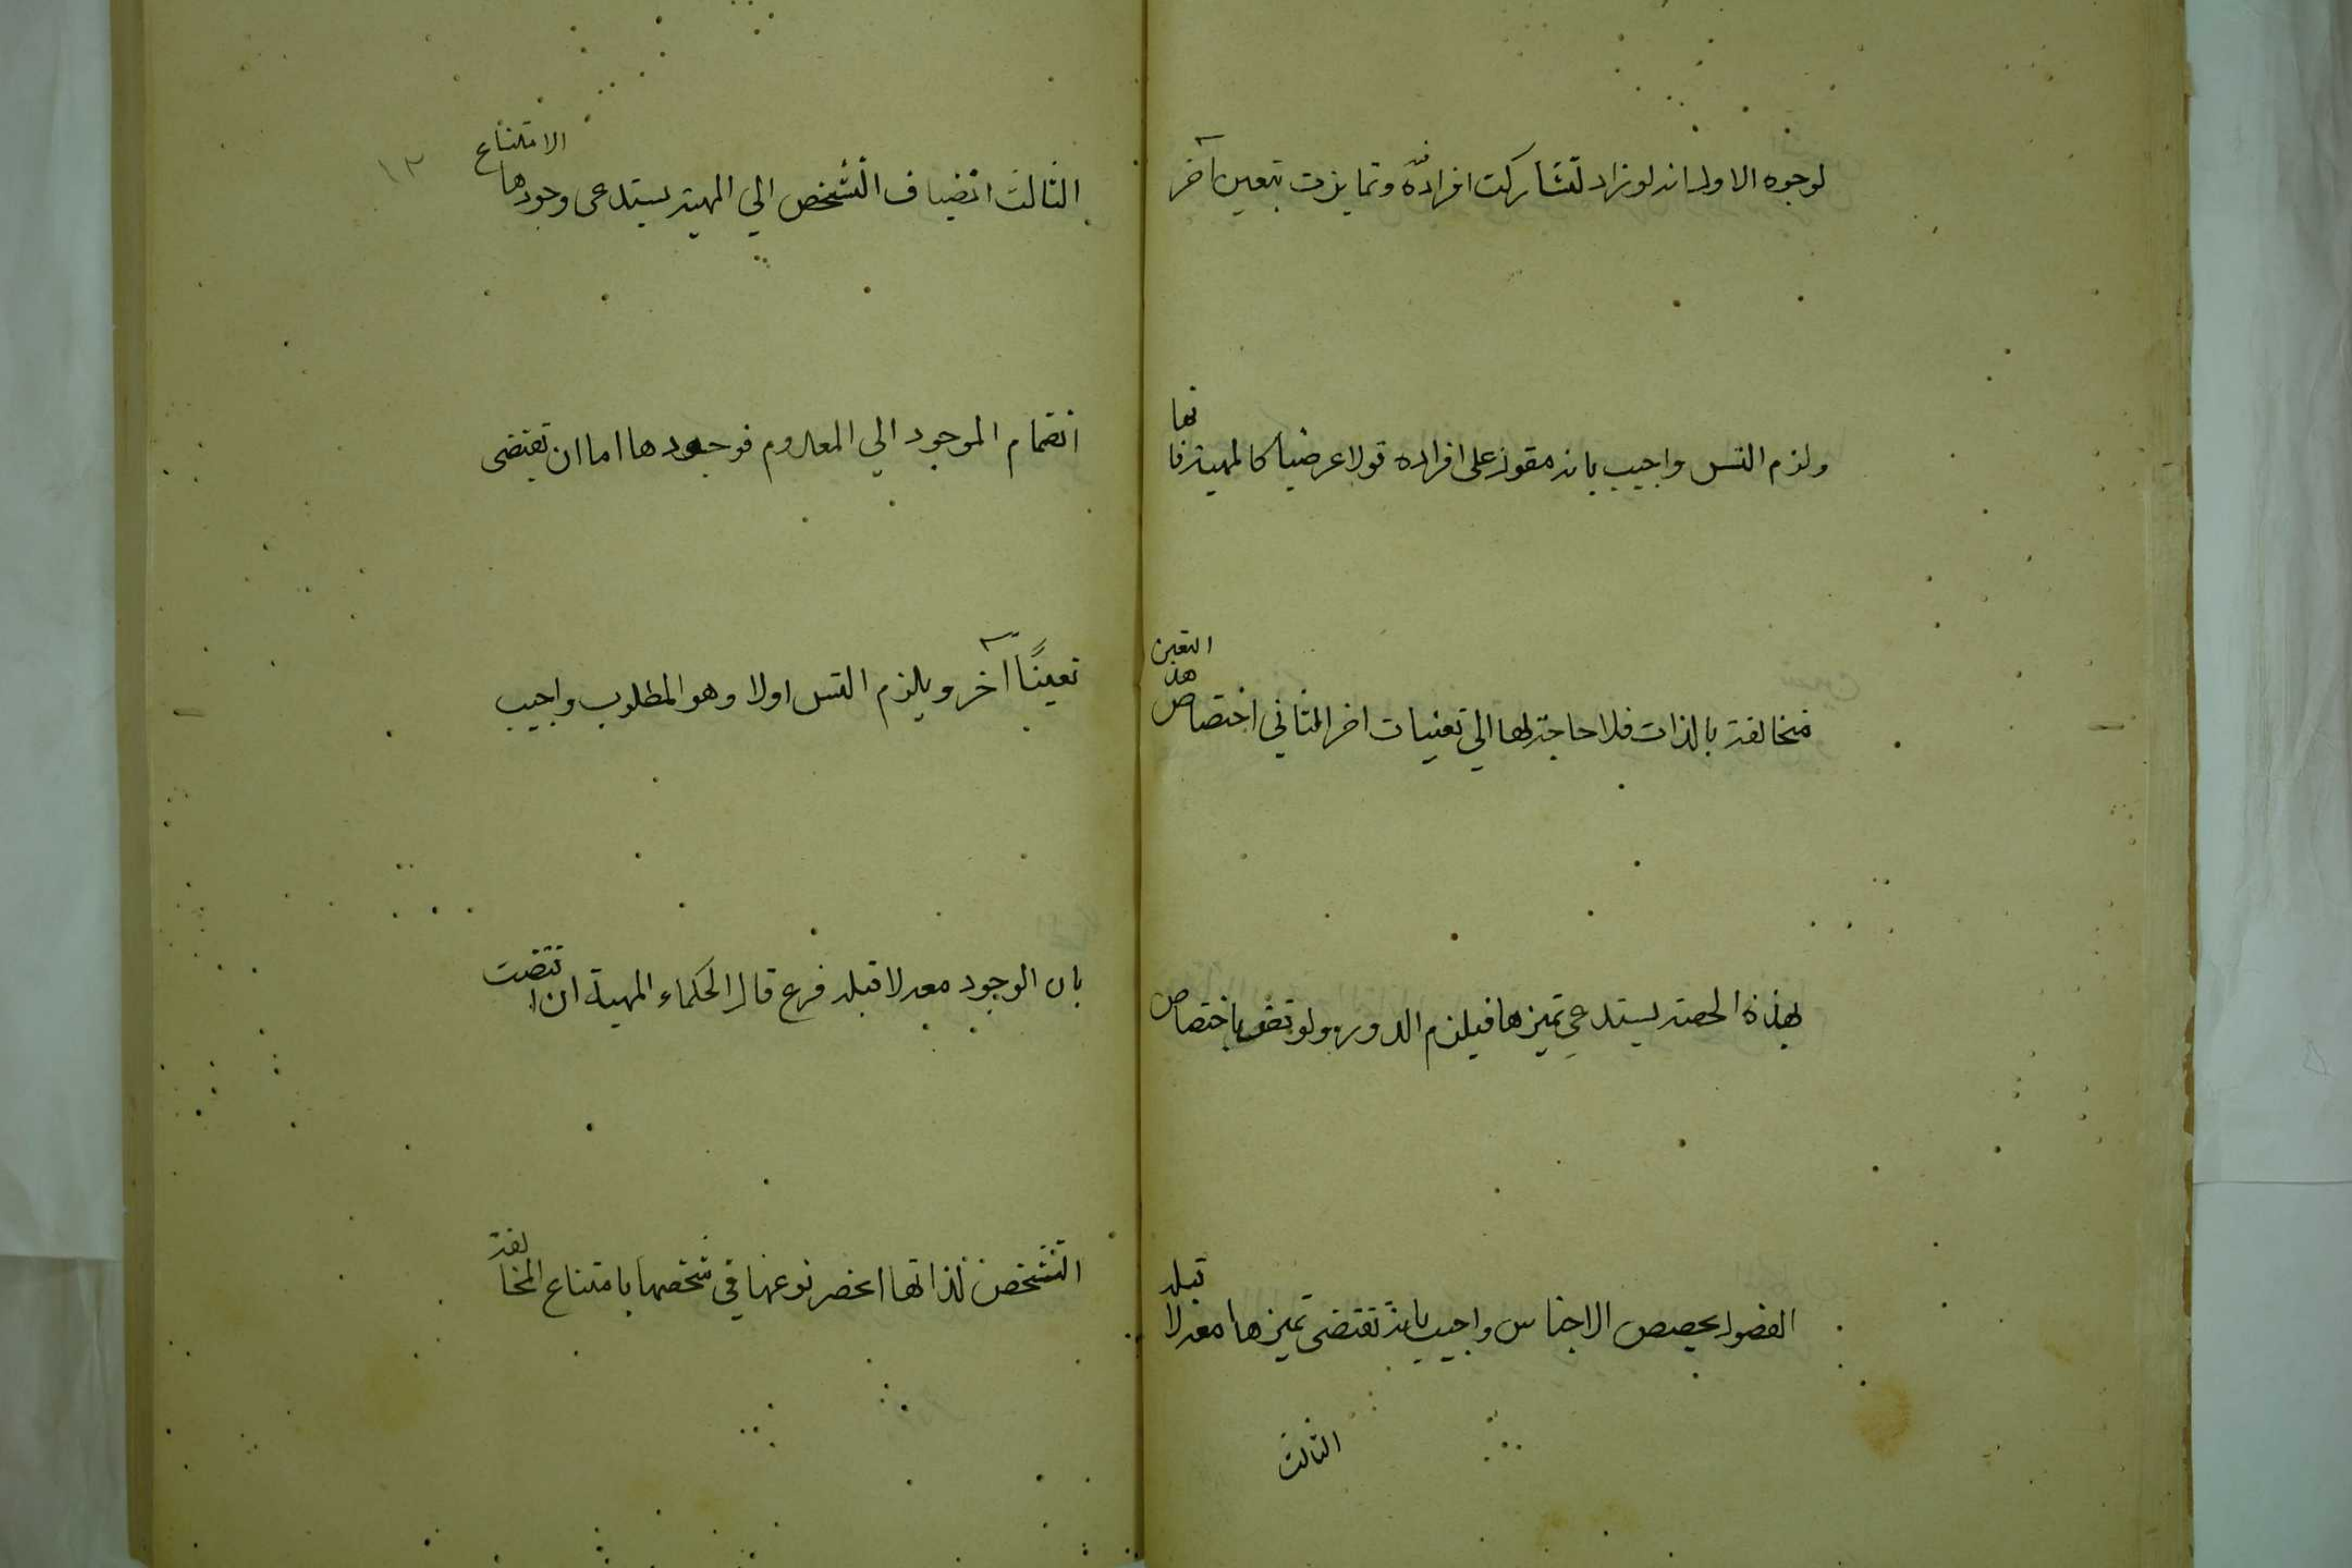 لوجوه الاول انه لو زاد لتشاركت افراده فيه وتمايزت بتعين آخر
ولزم التس واجيب بانه مقول على افراده قولا عرضيا كالمهية فانها
متخالفة بالذات فلا حاجة لها الي تعنيات اخر الثاني اختصاص هذا التعين
بهذه الحصة يستدعي تميزها فيلزم الدور ونوقض باختصاص
الفصول بحصص الاجناس واجيب بانه تقتضى تميزها معه لا قبله
الثالث
١٣
الثالث انضياف التشخص الي المهية يستدعى وجودها لامتناع
انضمام الموجود الي المعدوم فوجودها اما ان تقتضى
تعينًا آخر ويلزم التس اولا وهو المطلوب واجيب
بان الوجود معه لا قبله فرع قال الحكماء المهية ان اقتضت
التشخص لذاتها انحصر نوعها في شخصها بامتناع المخالفة